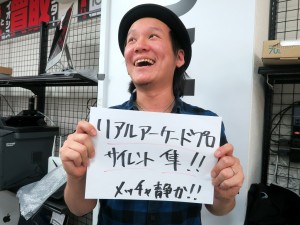 買取
リアルアーケードプロ
サイレント 隼!!
メッチャ静か!!